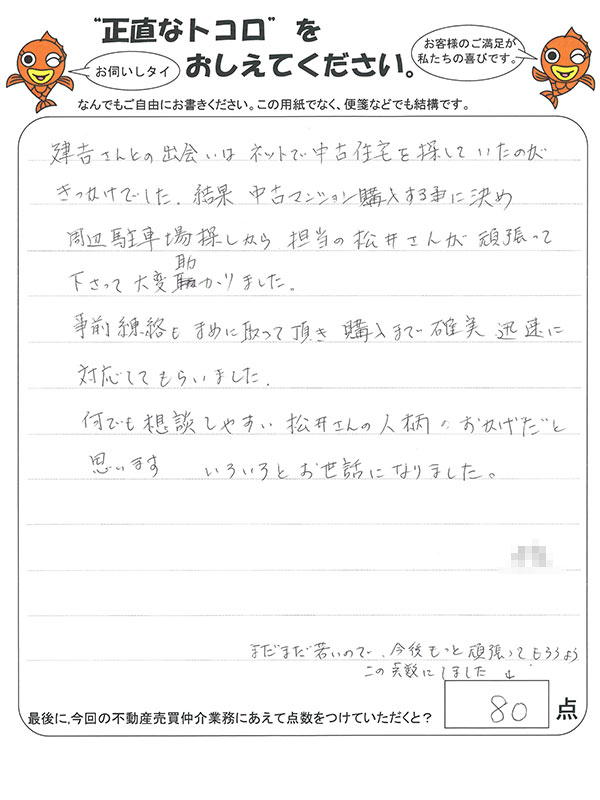 "正直なトコロ"を
おしえてください。
お伺いしタイ
お客様のご満足が
私たちの喜びです。
なんでもご自由にお書きください。この用紙でなく、便箋などでも結構です。
建吉さんとの出会いは ネットで中古住宅を探していたのが
きっかけでした. 結果 中古マンション購入する事に決め
周辺駐車場探しから 担当の松井さんが 頑張って
下さって 大変助かりました。
事前練絡も まめに取って頂き 購入まで 確実 迅速に
対応してもらいました.
何でも想談しやすい 松井さんの人柄のおかげだと
思います いろいろとお世話になりました。
まだまだ若いので、今後もっと頑張ってもらうよう
この点数にしました ↓
最後に、今回の不動産売買仲介業務にあえて点数をつけていただくと?
80 点